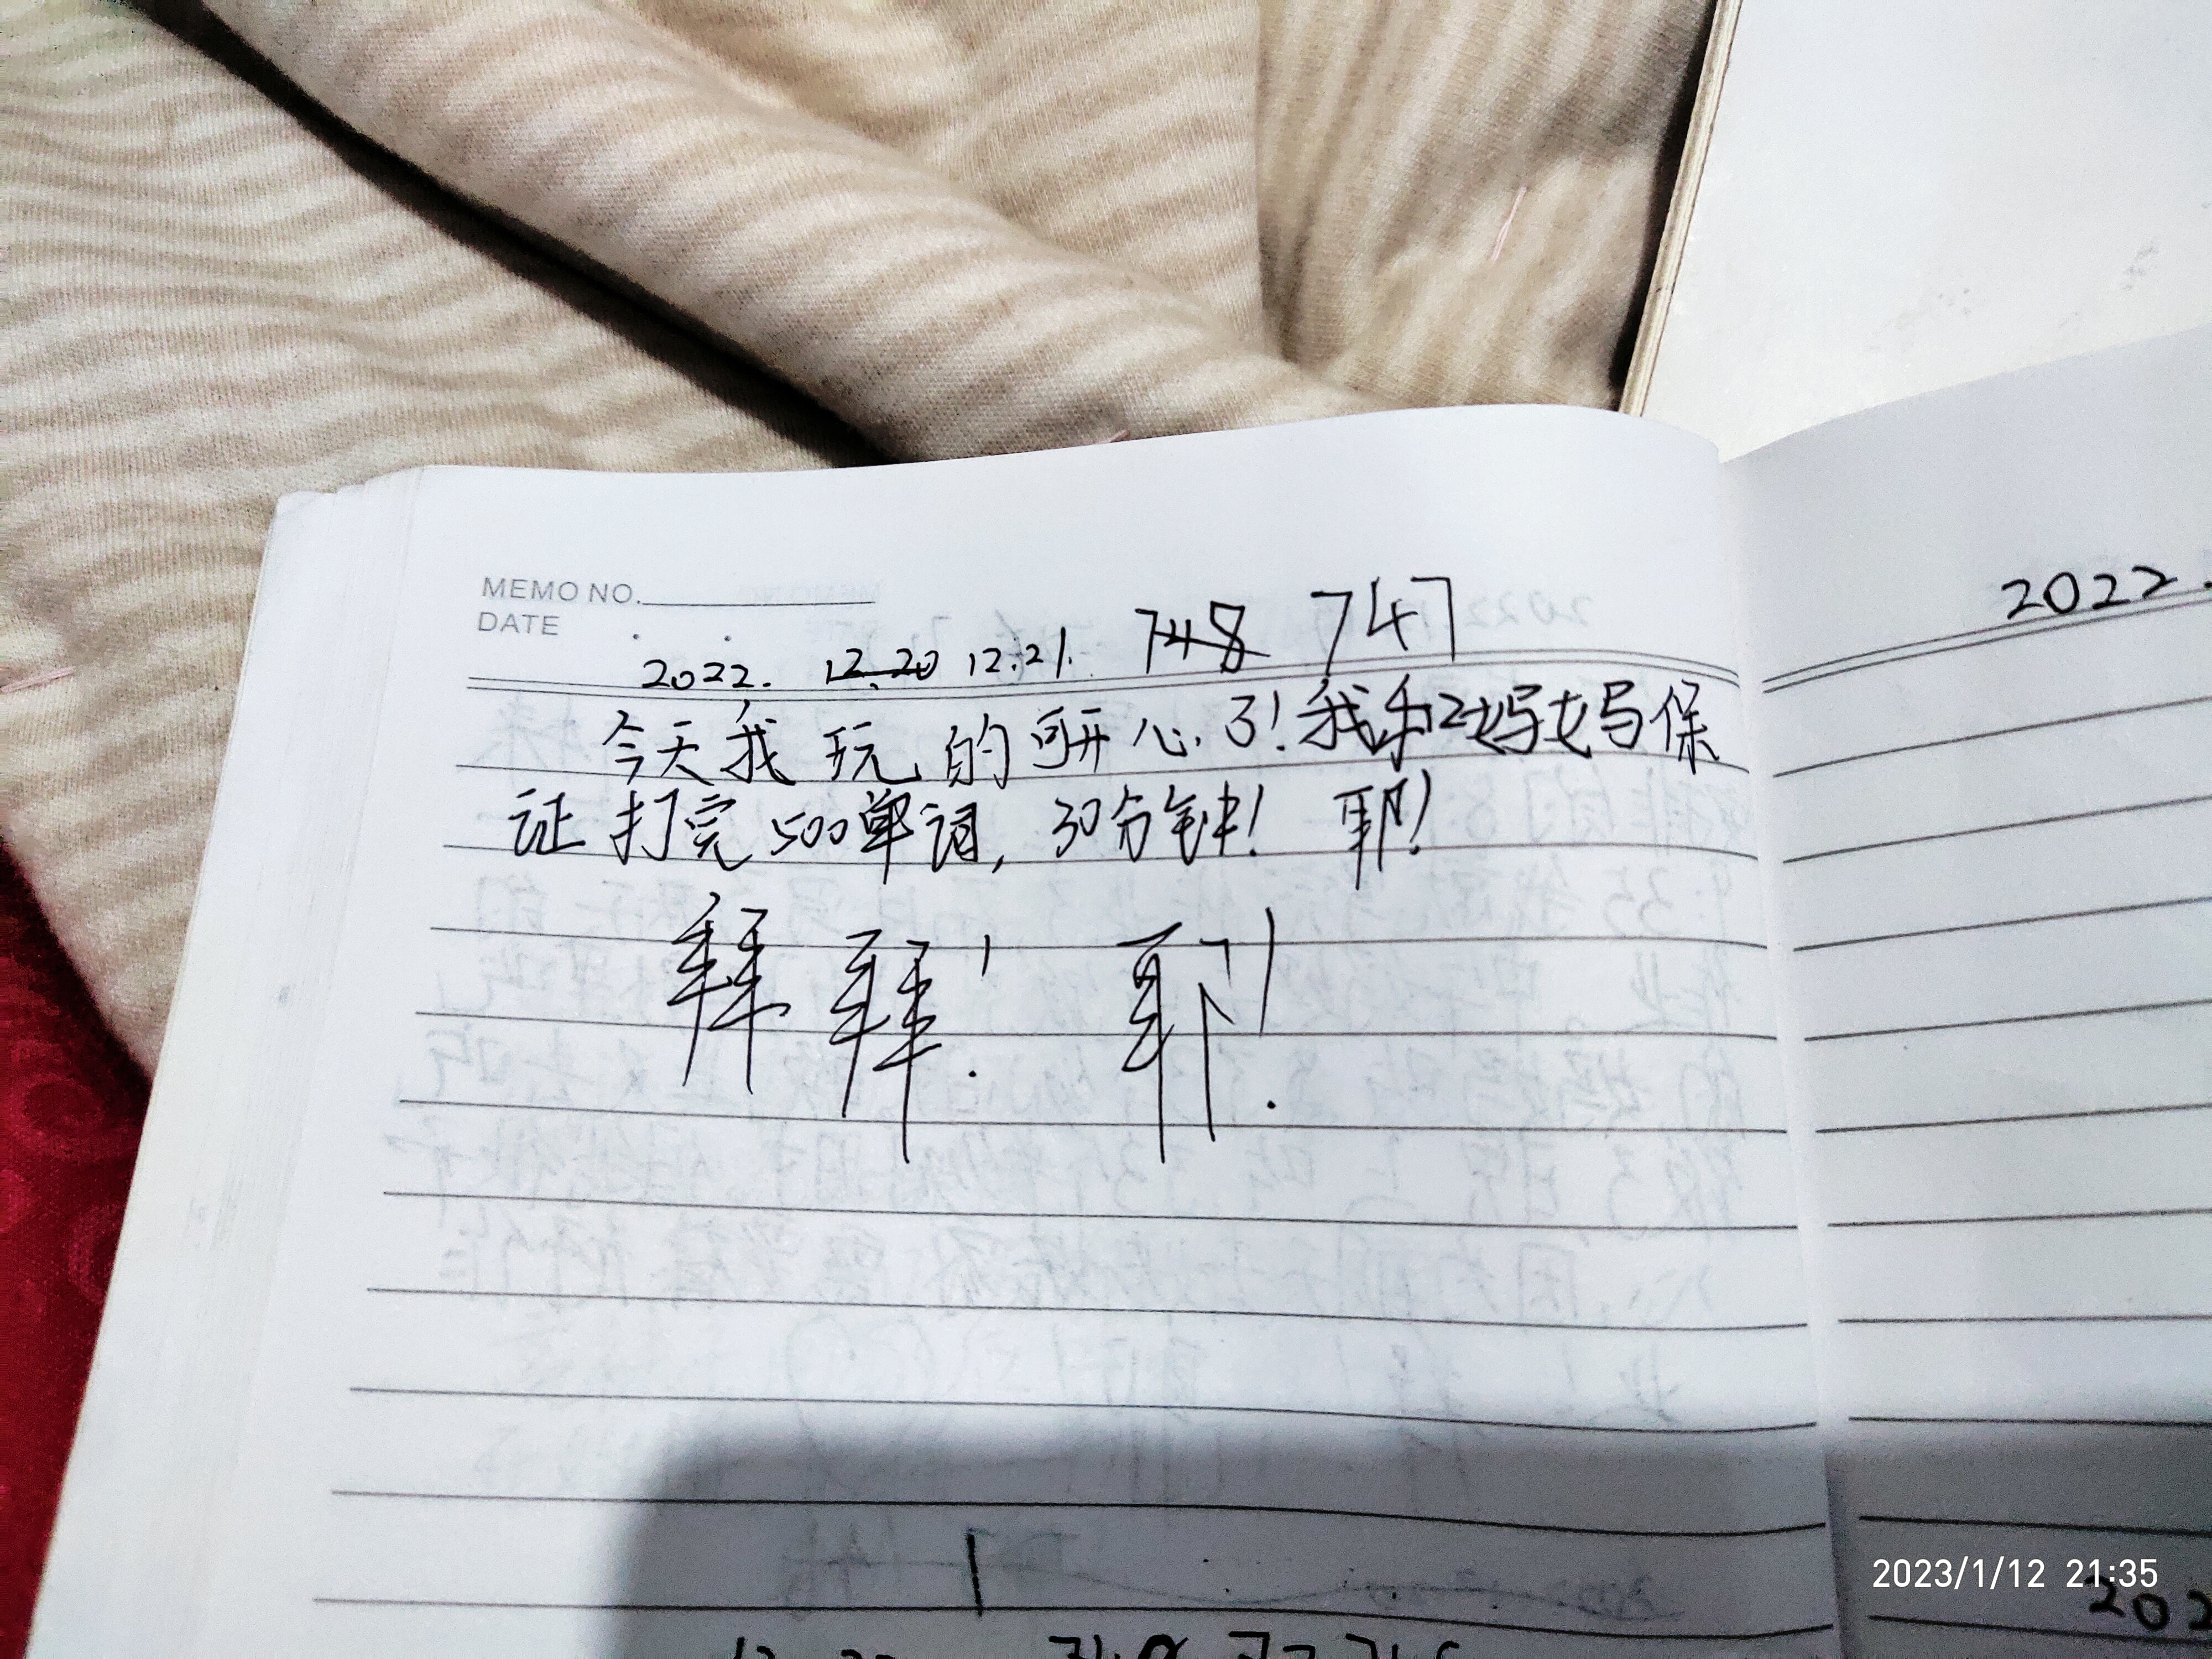 MEMO NO.
DATE . .
2022. 12.20 12.21. 748 747
今天我玩的可开心了!我和妈妈保
证打完500单词,30分钟! 耶!
拜拜! 耶!
2022.
2023/1/12 21:35
202